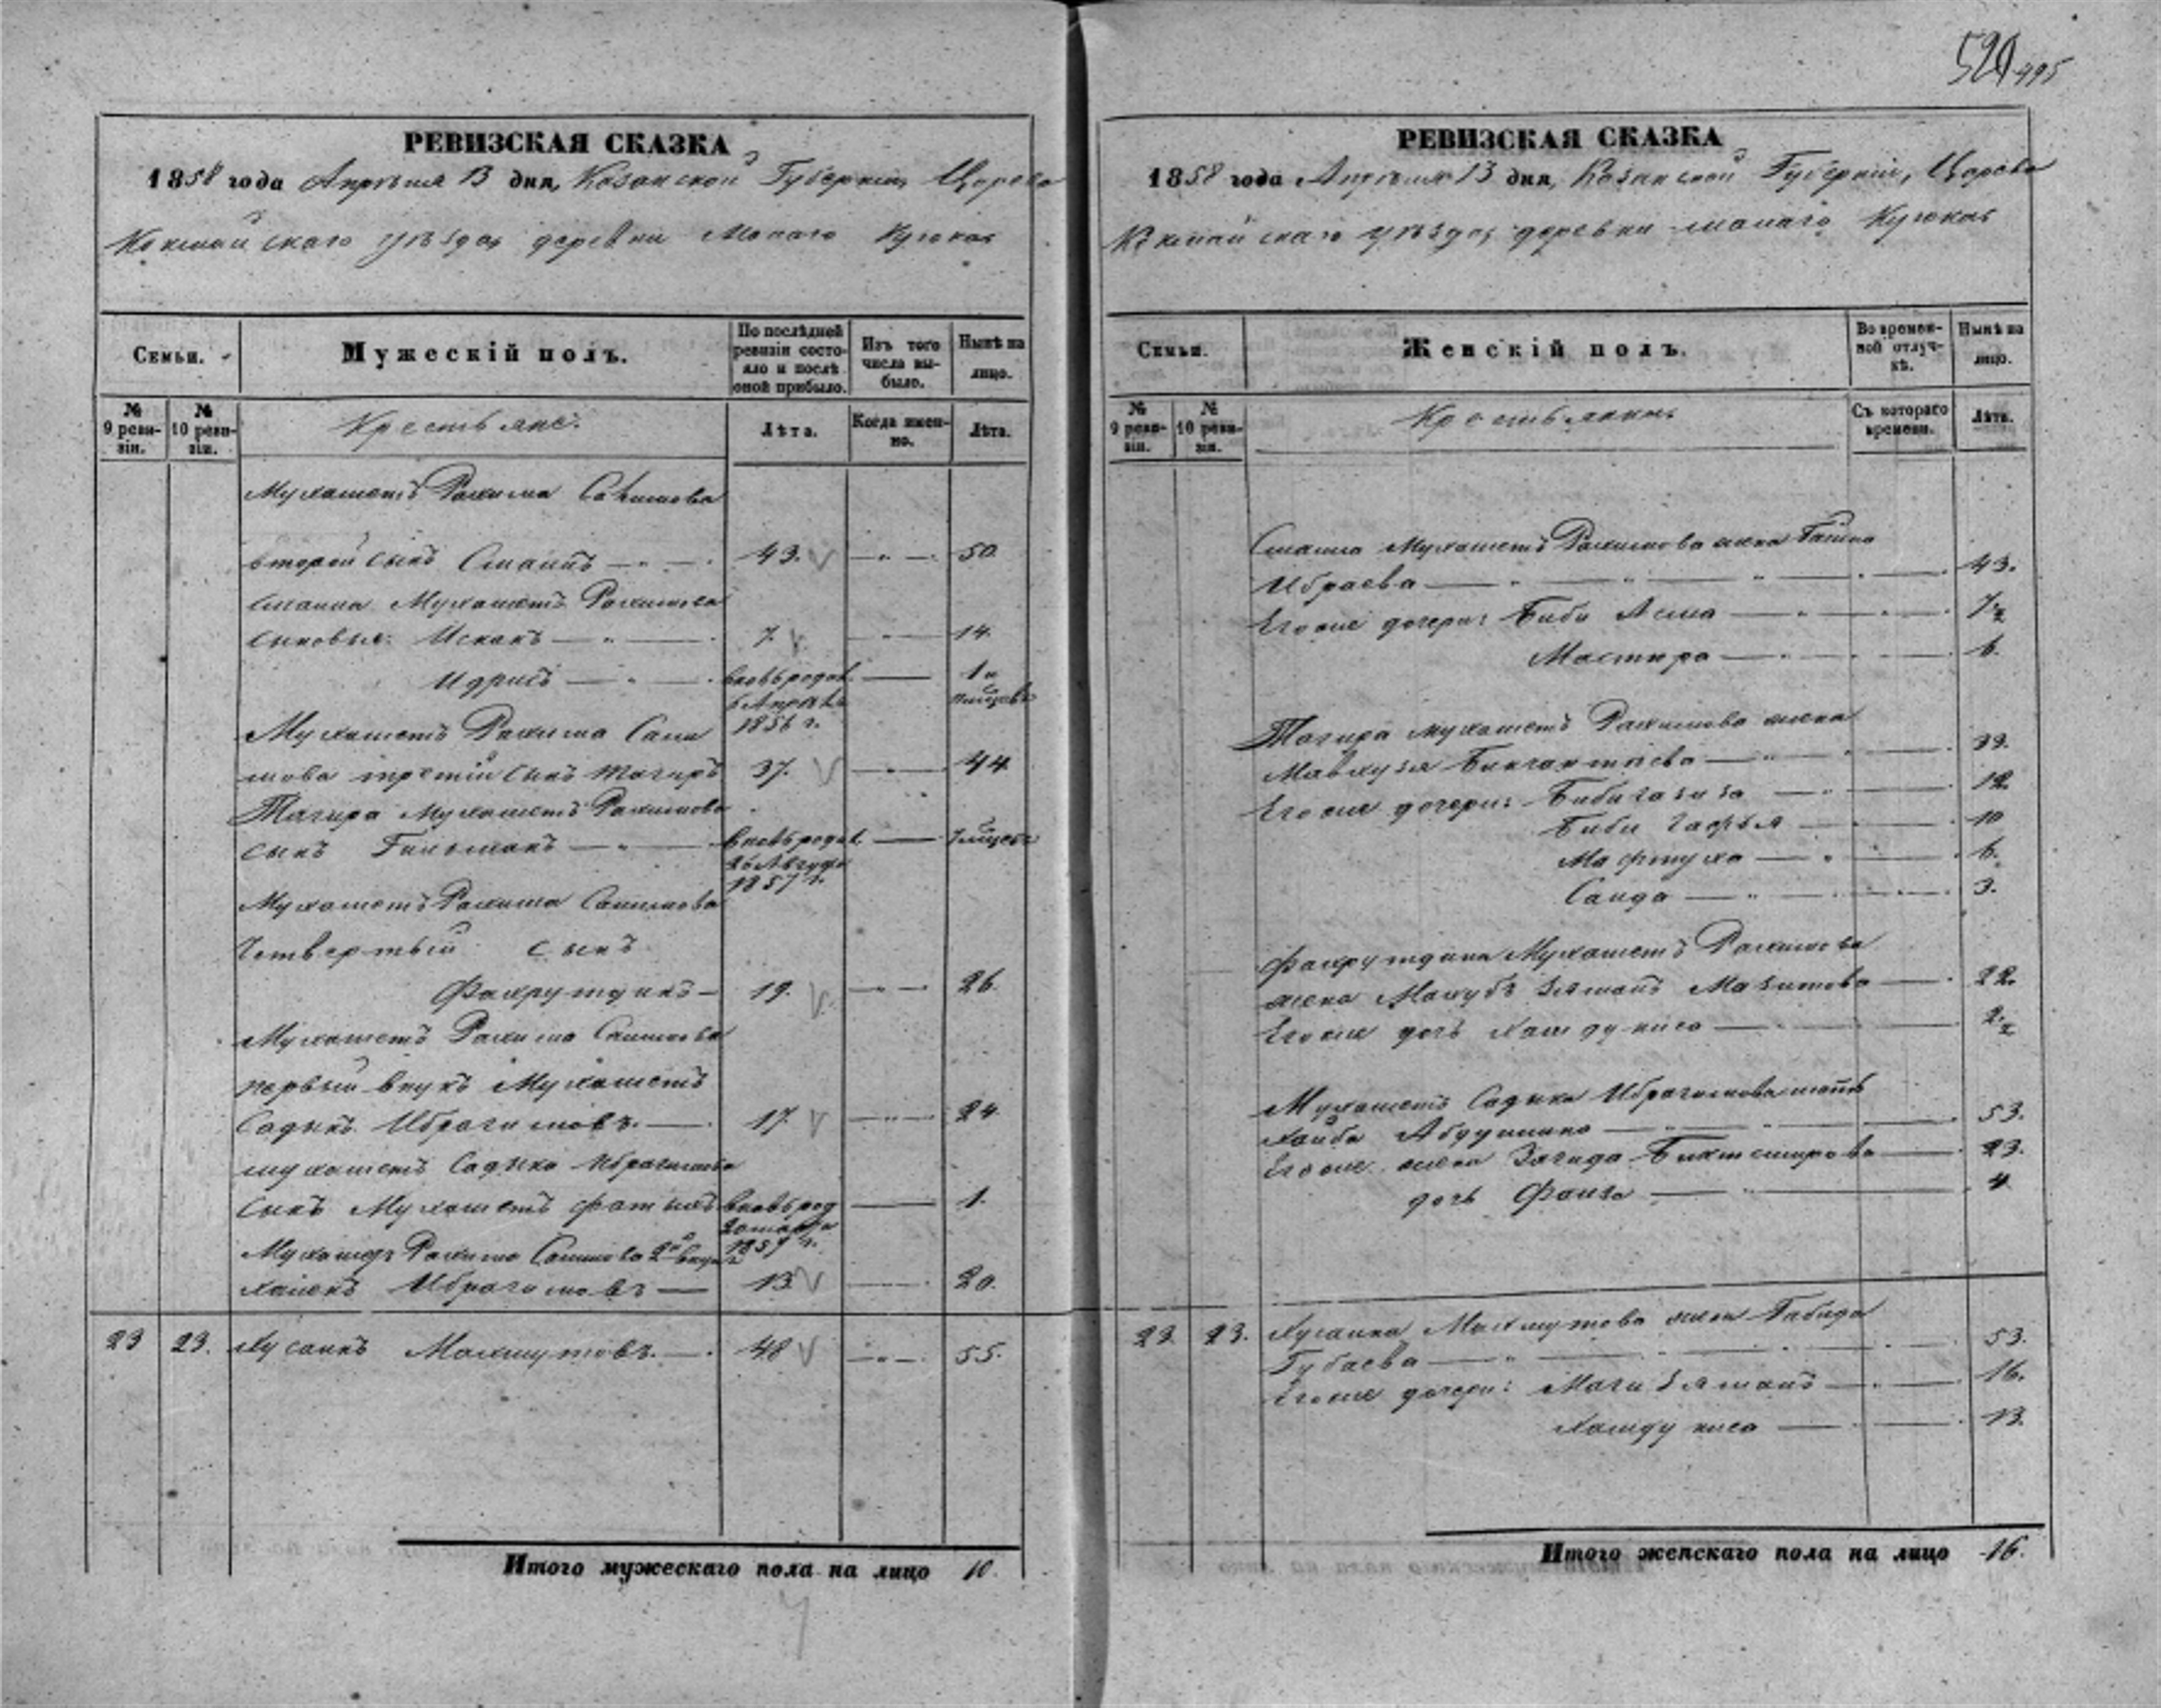 520 495
РЕВИЗСКАЯ СКАЗКА
1858 года Апрѣля 13 дня, Казанской Губерніи, Царево
Кокшайскаго уѣзда, деревни Малаго Кугюка
Семьи.
Мужескій полъ.
По послѣдней ревизіи состояло и послѣ оной прибыло.
Изъ того числа выбыло.
Нынѣ на лицо.
№ 9 ревизіи.
№ 10 ревизіи.
Крестьяне:
Лѣта.
Когда именно.
Лѣта.
Мухаметъ Рахима Салимова
второй сынъ Смаилъ 43. 50.
Смаила Мухаметъ Рахимова
сыновья: Исхакъ 7. 14.
Идрисъ вновьрод. 1 и
6 Апрѣля мѣсяцевъ
1856 г.
Мухаметъ Рахима Сали
мова третій сынъ Тагиръ 37. 44
Тагира Мухаметъ Рахимова
сынъ Гильманъ вновьрод. 7 мѣсяц
26 Августа
1857 г.
Мухаметъ Рахима Салимова
Четвертый сынъ
Фахрутдинъ 19. 26.
Мухаметъ Рахима Салимова
первый внукъ Мухаметъ
Садыкъ Ибрагимовъ. 17. 24.
Мухаметъ Садыка Ибрагимова
сынъ Мухаметъ Фатыхъ вновьрод 1.
марта
1857 г.
Мухамедъ Рахима Салимова 2й внукъ
Ибрагимовъ 13 20.
23 23. Хусаинъ Махмутовъ. 48 55.
Итого мужескаго пола на лицо 10.
РЕВИЗСКАЯ СКАЗКА
1858 года Апрѣля 13 дня, Казанской Губерніи, Царево
Кокшайскаго уѣзда, деревни малаго Кугюка
Семьи.
Женскій полъ.
Во временной отлучкѣ.
Нынѣ на лицо.
№ 9 ревизіи.
№ 10 ревизіи.
Крестьянки
Съ котораго времени.
Лѣта.
Смаила Мухаметъ Рахимова жена
Ибраева 43.
Его же дочери: Биби Асма 7½
Мастира 6.
Тагира Мухаметъ Рахимова жена
Мавлузя 39.
Его же дочери: Бибигазиза 12.
Биби Гафья 10
Мафтуха 6.
Саида 3.
Фахрутдина Мухаметъ Рахимова
жена Махубъ Зяманъ Мазитова 22.
Его же дочь Хамдуниса 2½
Мухаметъ Садыка Ибрагимова мать
Хайба 53.
Его же жена Загида Биктемирова 23.
дочь Фаиза 4
23. 23. Хусаина Махмутова жена Габида
Губаева 53.
Его же дочери: Маги Зяманъ 16.
Хамдуниса 13.
Итого женскаго пола на лицо 16.